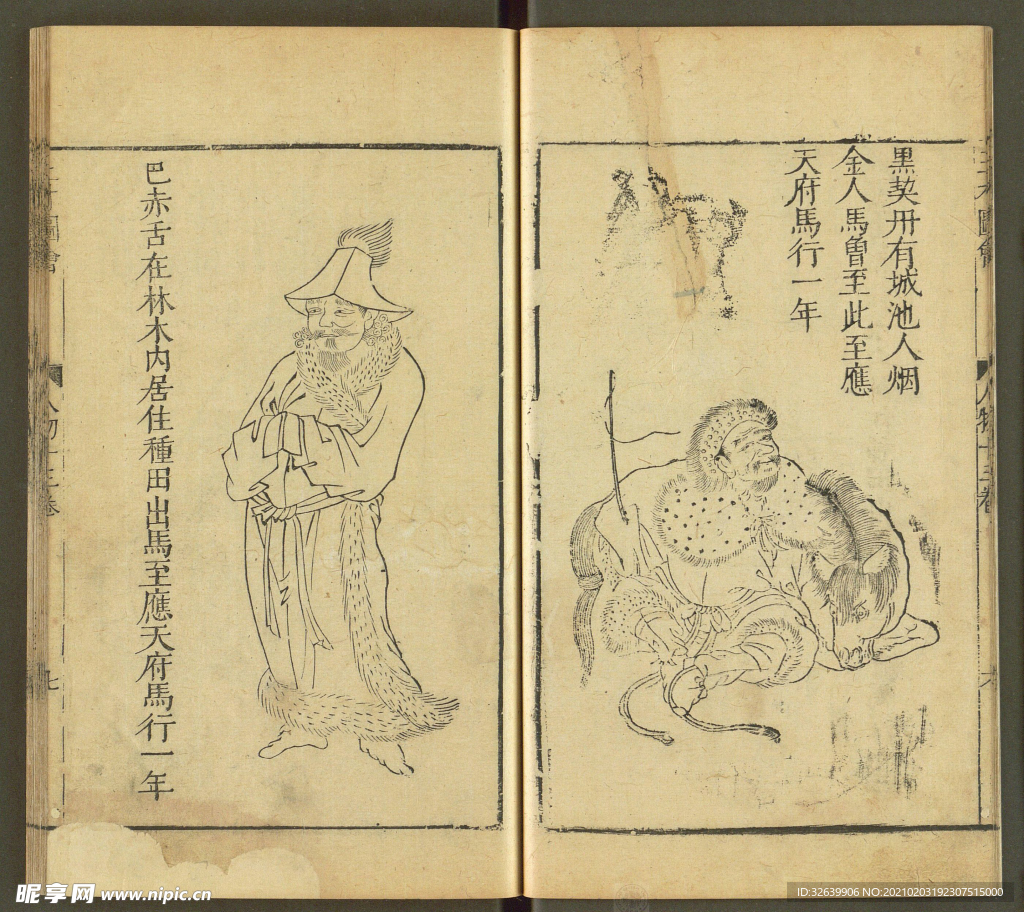 黒契丹有城池人烟
金人馬曾至此至應
天府馬行一年
巴赤舌在林木内居住種田出馬至應天府馬行一年
圖會
人物十三卷
昵享网 www.nipic.cn
ID:32639906 NO:20210203192307515000